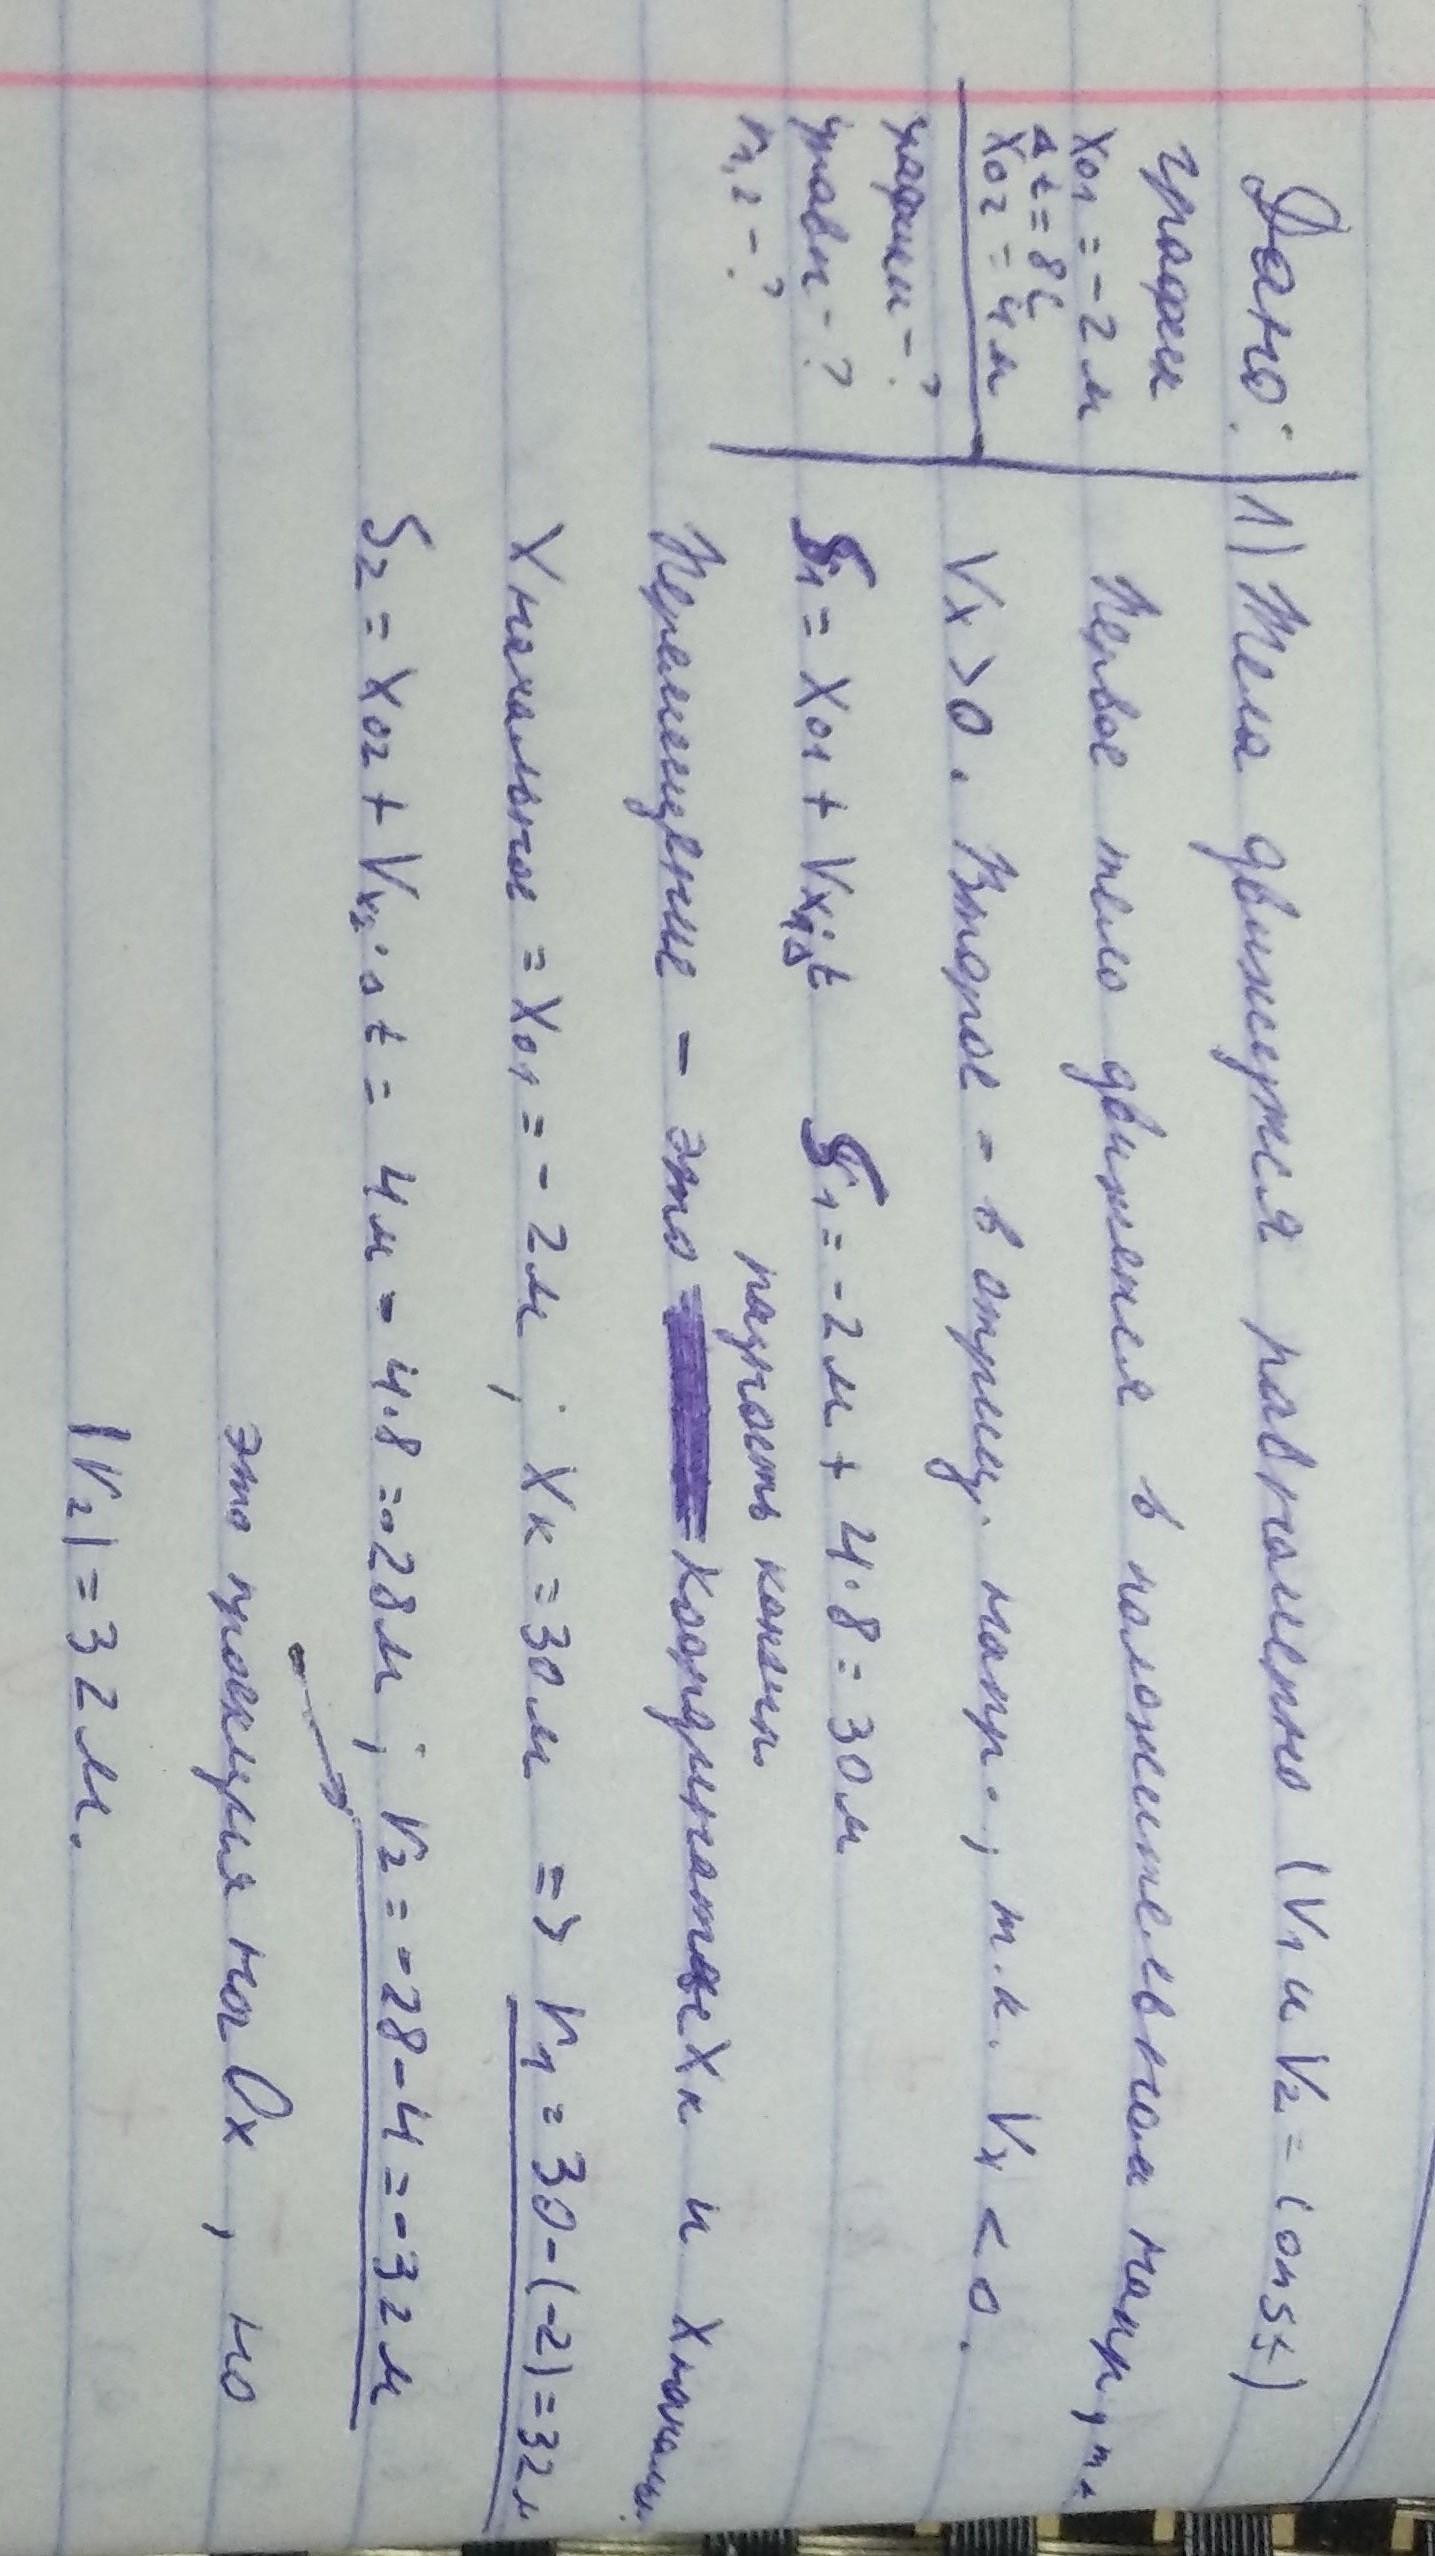 Дано:
график
X01 = -2 м
Δt = 8 с
X02 = 4 м
график - ?
уравн - ?
r1,2 - ?
1) Тела движутся равномерно (V1 и V2 = const)
Первое тело движется в положительном напр, т.к
Vx > 0. Второе - в отриц. напр., т.к. Vx < 0.
S1 = X01 + Vx1·Δt S1 = -2м + 4·8 = 30м
разность конечн.
Перемещение - это координаты Xк и Xначальн.
Xначальное = X01 = -2м; Xк = 30м => r1 = 30-(-2) = 32м
S2 = X02 + Vx2·Δt = 4м - 4·8 = -28м; r2 = -28-4 = -32м
это проекция на Ox, но
|r2| = 32м.